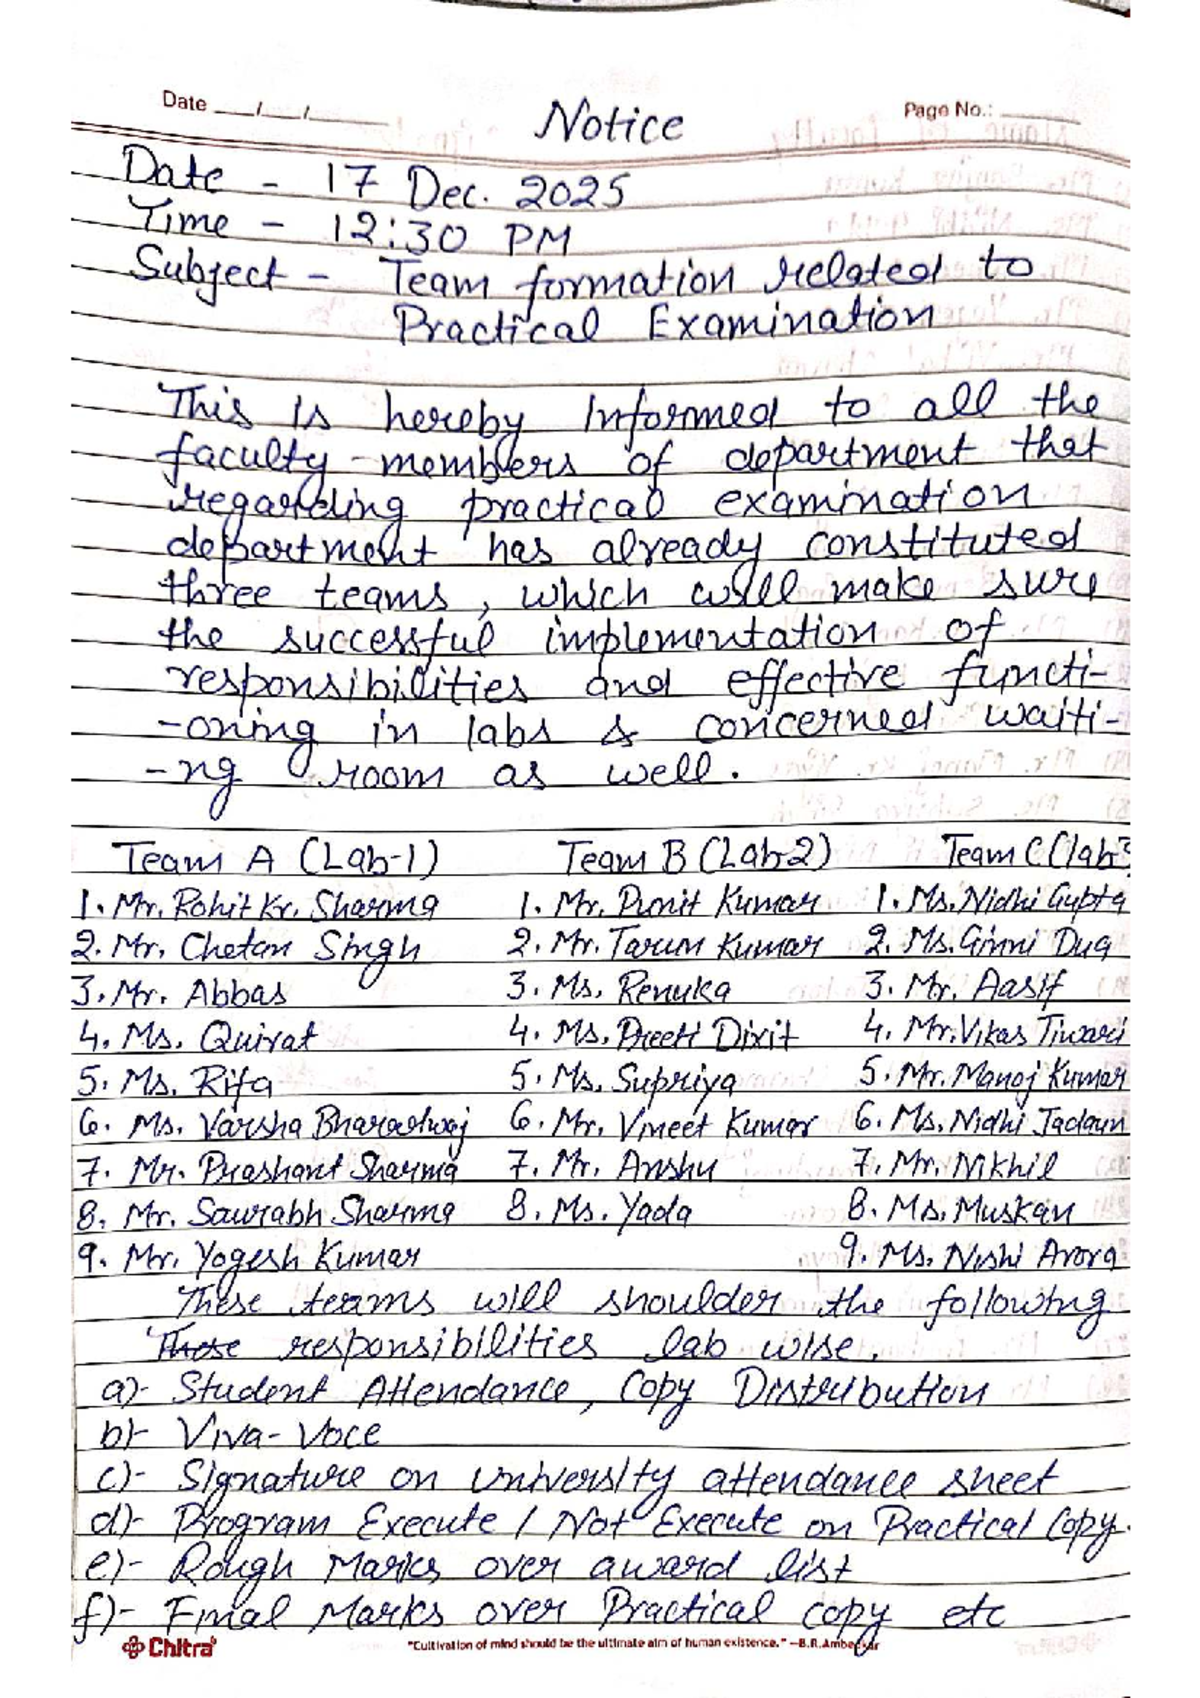 Date ___/___/______
Notice
Page No.: ______
Date - 17 Dec. 2025
Time - 12:30 PM
Subject - Team formation related to
Practical Examination
This is hereby Informed to all the
faculty-members of department that
regarding practical examination
department has already constituted
three teams, which will make sure
the successful implementation of
responsibilities and effective functi-
-oning in labs & concerned waiti-
-ng room as well.
Team A (Lab-1) Team B (Lab-2) Team C (lab
1. Mr. Rohit Kr. Sharma 1. Mr. Punit Kumar 1. Ms. Nidhi Gupta
2. Mr. Chetan Singh 2. Mr. Tarun Kumar 2. Ms. Ginni Dua
3. Mr. Abbas 3. Ms. Renuka 3. Mr. Aasif
4. Ms. Quirat 4. Ms. Preeti Dixit 4. Mr. Vikas Tiwari
5. Ms. Rifa 5. Ms. Supriya 5. Mr. Manoj Kumar
6. Ms. Varsha Bharadwaj 6. Mr. Vineet Kumar 6. Ms. Nidhi Jadaun
7. Mr. Prashant Sharma 7. Mr. Anshu 7. Mr. Nikhil
8. Mr. Saurabh Sharma 8. Ms. Yada 8. Ms. Muskan
9. Mr. Yogesh Kumar 9. Ms. Nishi Arora
These teams will shoulder the following
These responsibilities lab wise.
a)- Student Attendance, Copy Distribution
b)- Viva-Voce
c)- Signature on University attendance sheet
d)- Program Execute / Not Execute on Practical Copy.
e)- Rough Marks over award list
f)- Final Marks over Practical copy etc
Chitra
"Cultivation of mind should be the ultimate aim of human existence." —B.R.Ambedkar